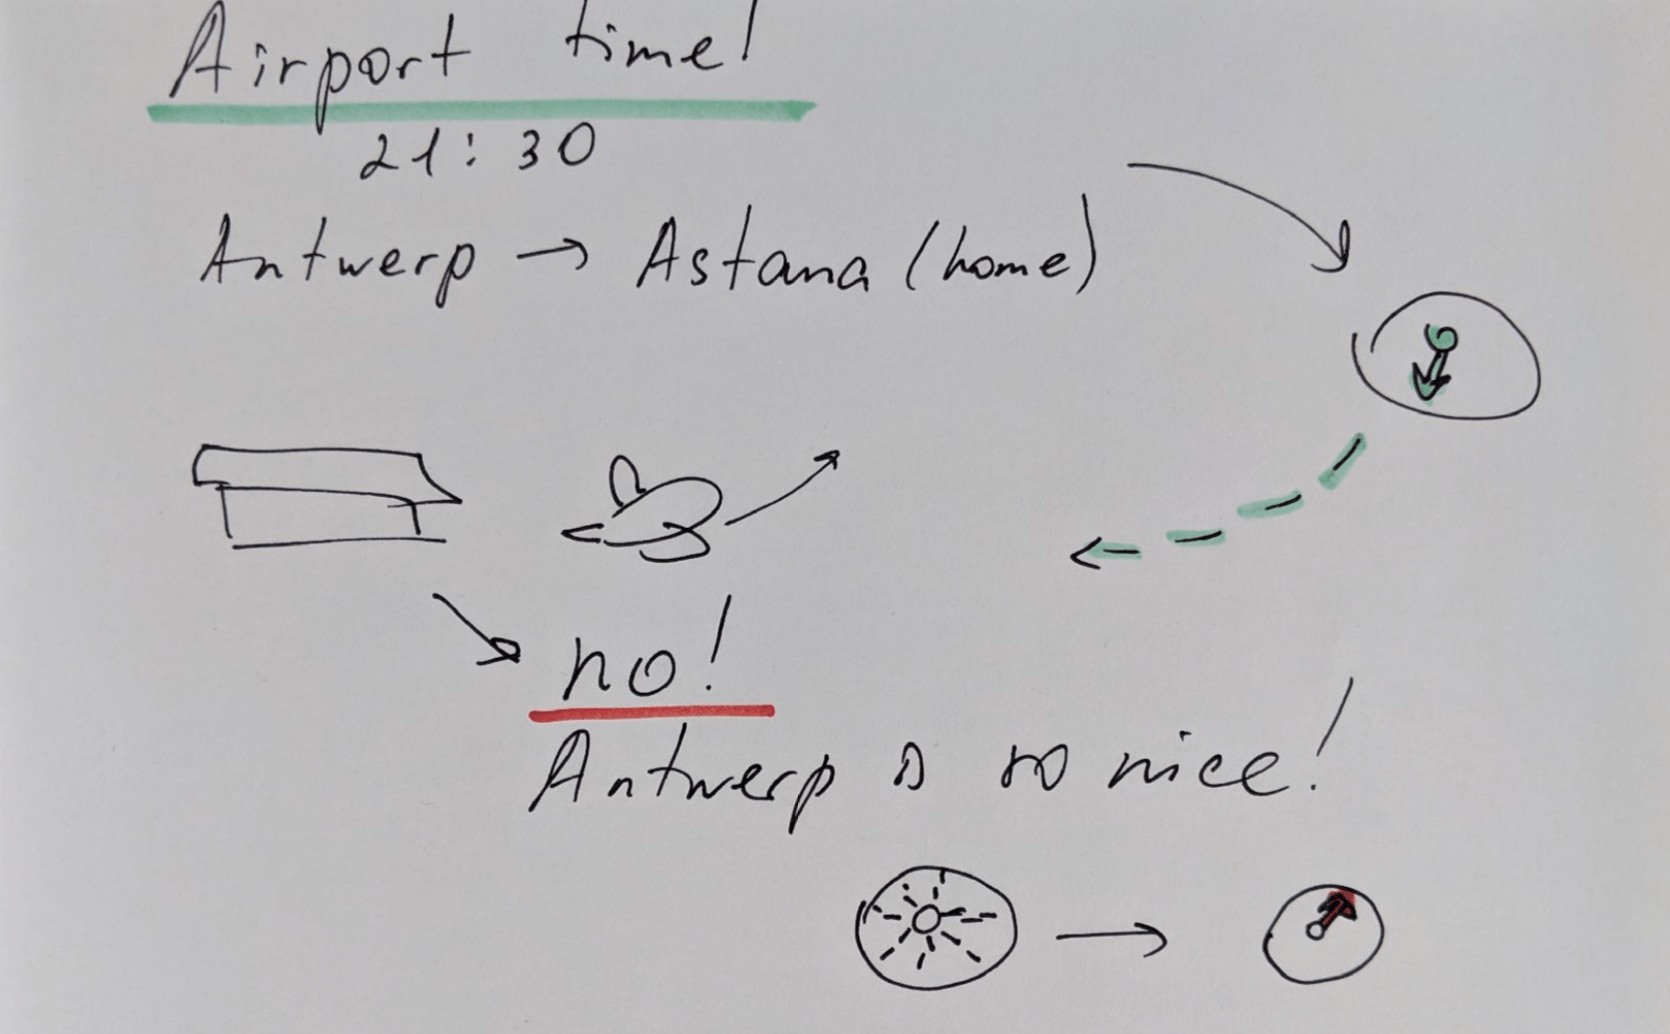 Airport time!
21:30
Antwerp → Astana (home)
no!
Antwerp is so nice!